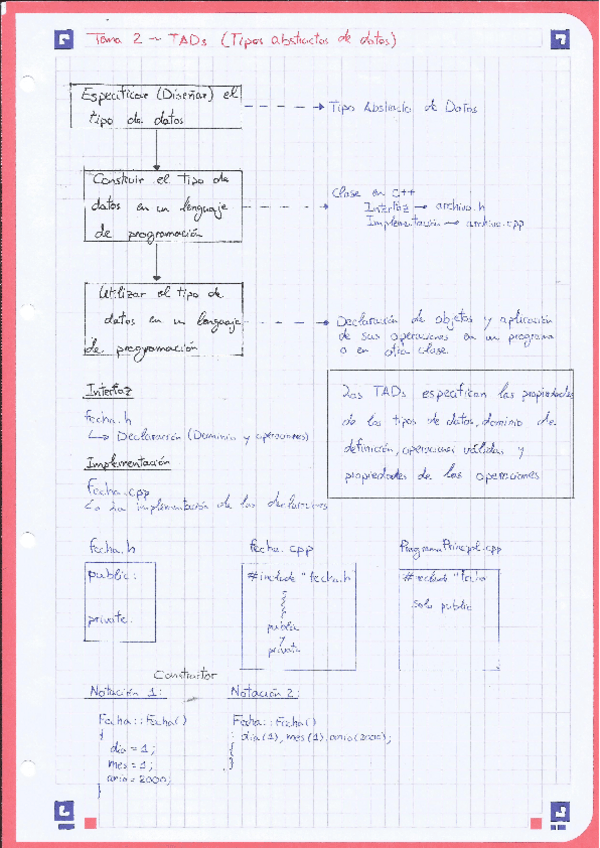 Tema 2 - TADs (Tipos abstractos de datos)
Especificar (Diseñar) el
tipo de datos
Tipo Abstracto de Datos
Construir el tipo de
datos en un lenguaje
de programación
Clase en C++
Interfaz → archivo.h
Implementación → archivo.cpp
Utilizar el tipo de
datos en un lenguaje
de programación
Declaración de objetos y aplicación
de sus operaciones en un programa
o en otra clase.
Las TADs especifican las propiedades
de los tipos de datos, dominio de
definición, operaciones válidas y
propiedades de las operaciones
Interfaz
fecha.h
↳ Declaración (Dominio y operaciones)
Implementación
Fecha.cpp
↳ La implementación de las declaraciones
fecha.h
public:
private:
fecha.cpp
#include "fecha.h
public
y
private
ProgramaPrincipal.cpp
#include "fecha
solo public
Constructor
Notación 1:
Fecha::Fecha()
{
dia = 1;
mes = 1;
anio = 2000;
}
Notación 2:
Fecha::Fecha()
: dia(1), mes(1), anio(2000);
{
}